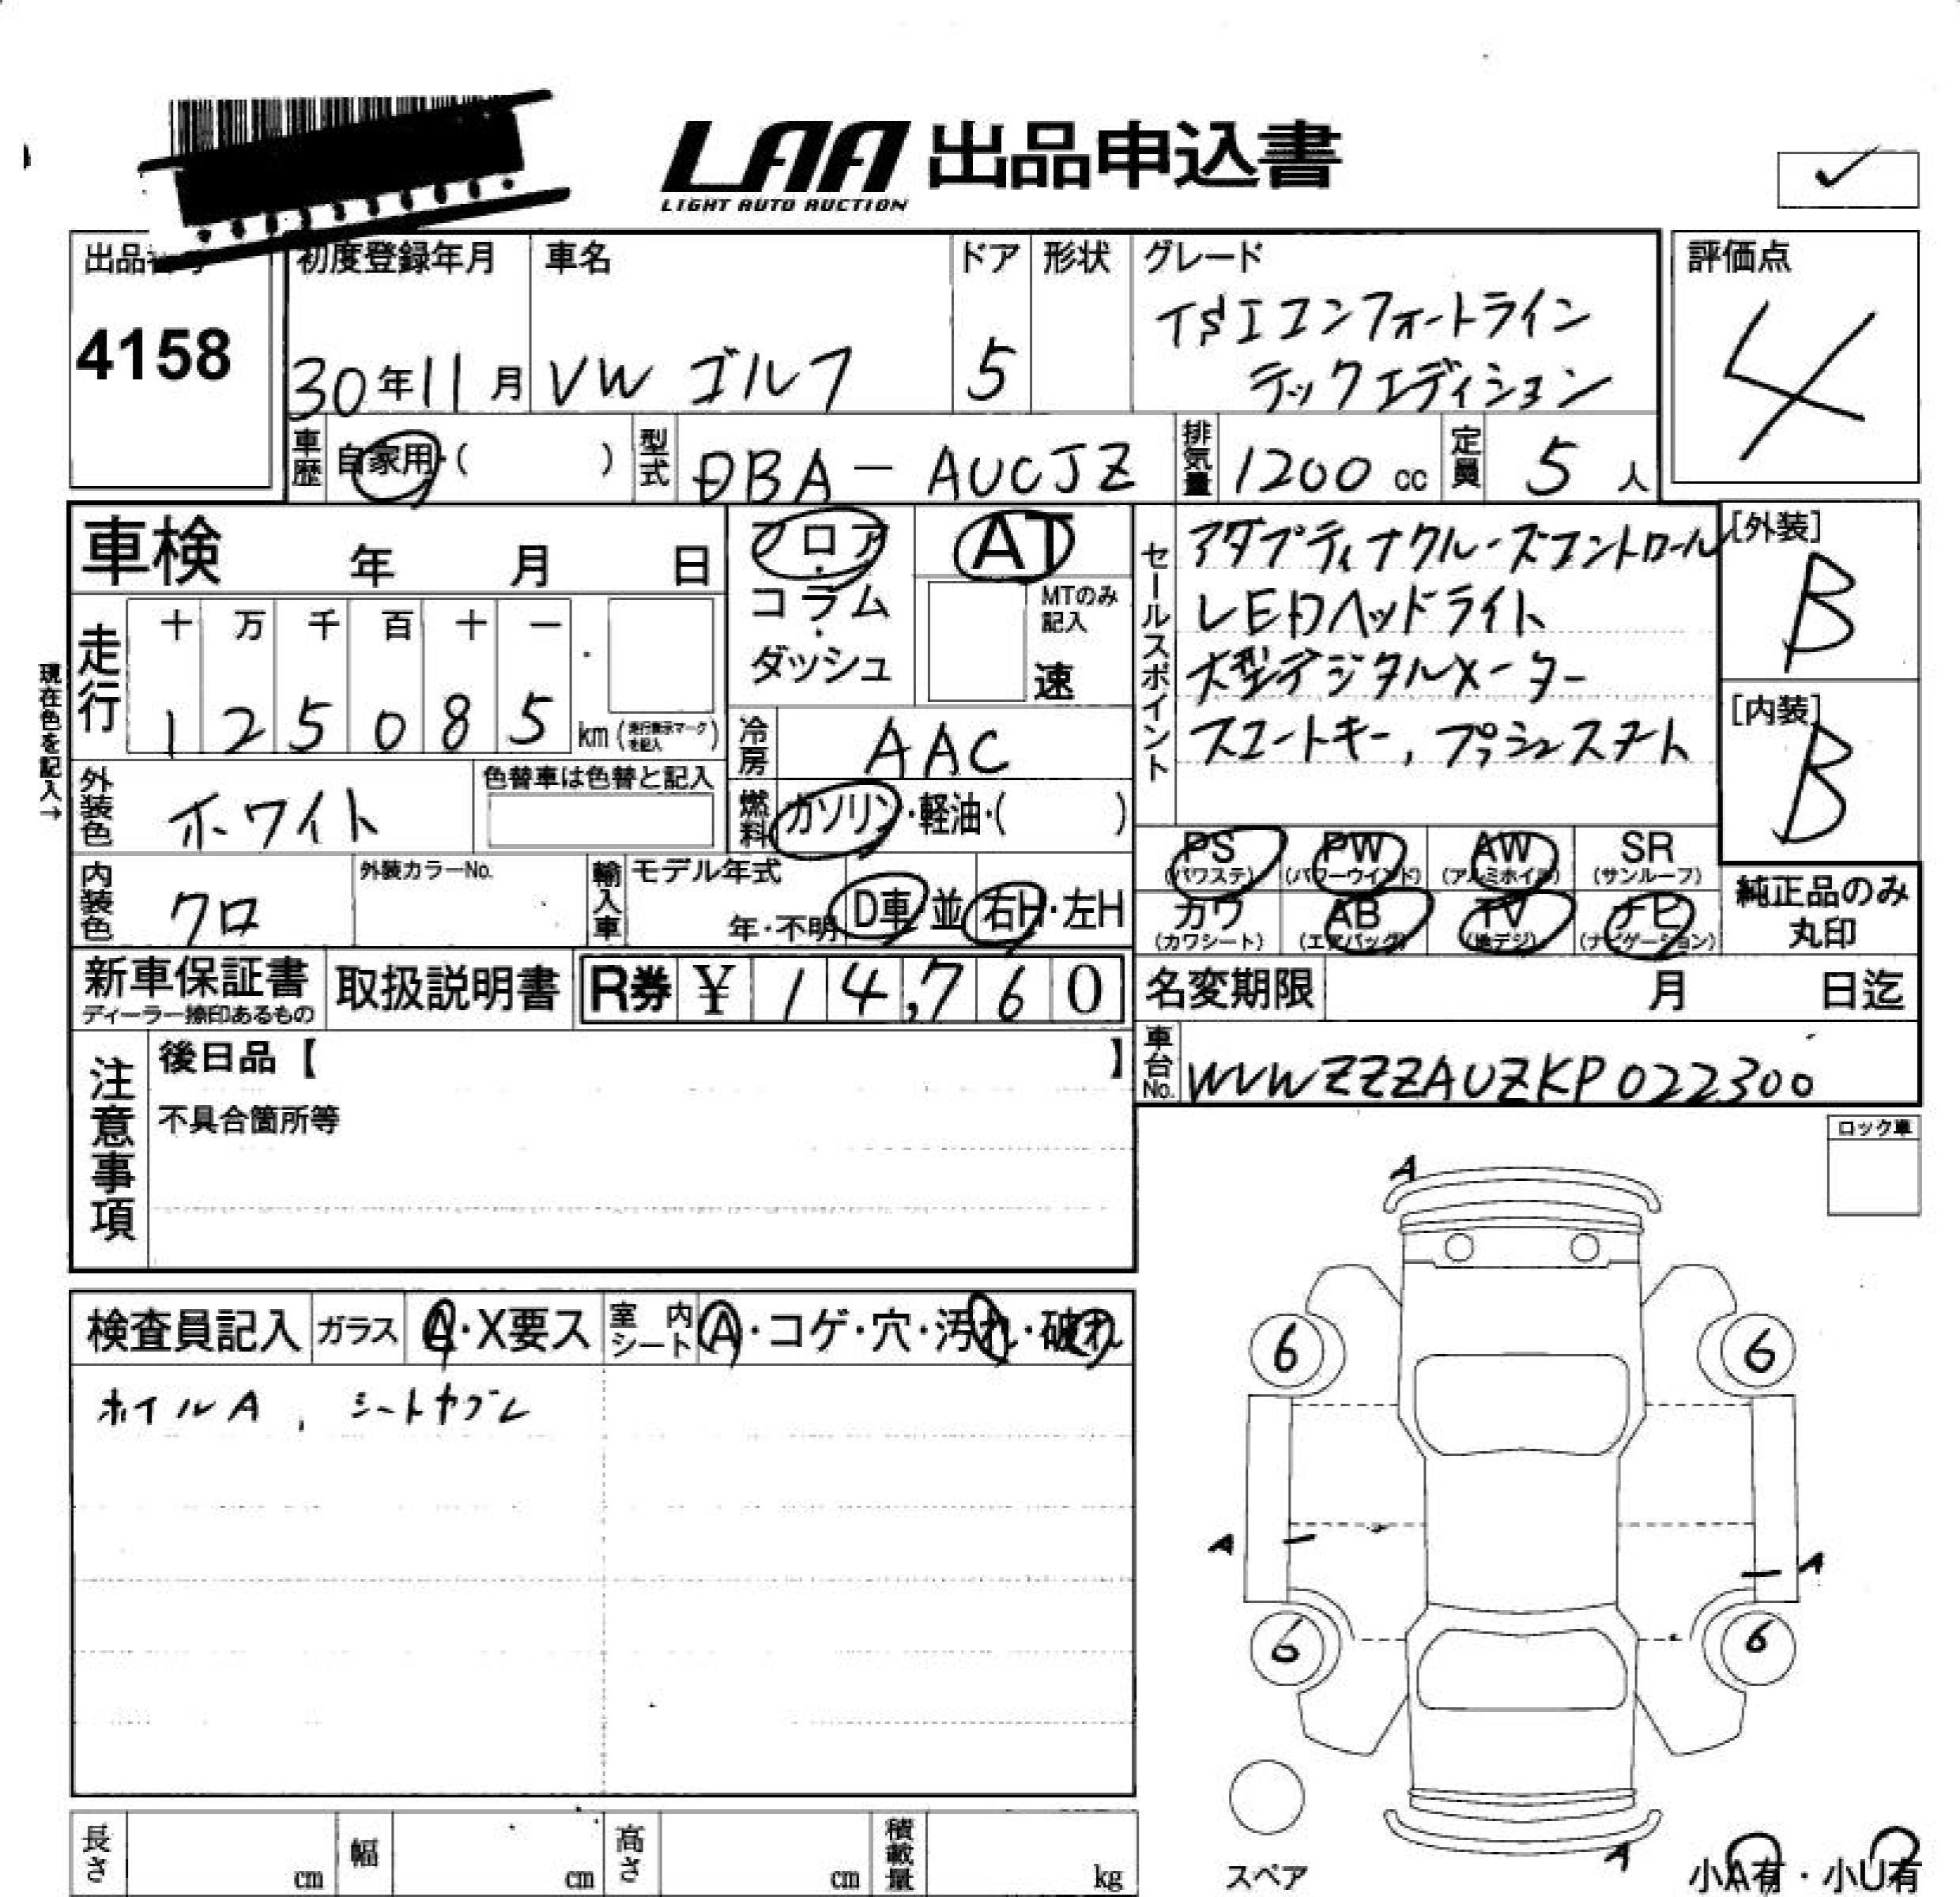 LAA 出品申込書
LIGHT AUTO AUCTION
✓
出品
4158
初度登録年月
30年11月
車名
VW ゴルフ
ドア
5
形状
グレード
TSIコンフォートライン
テックエディション
評価点
4
車歴
自家用・( )
型式
DBA-AUCJZ
排気量
1200 cc
定員
5 人
車検 年 月 日
現在色を記入→
走行
十 万 千 百 十 一
1 2 5 0 8 5 km
フロア
・
コラム
・
ダッシュ
AT
MTのみ
記入
速
冷房
AAC
燃料
ガソリン・軽油・( )
セールスポイント
アダプティブクルーズコントロール
LEDヘッドライト
大型デジタルメーター
スマートキー,プッシュスタート
[外装]
B
[内装]
B
外装色
ホワイト
色替車は色替と記入
内装色
クロ
外装カラーNo.
輸入車
モデル年式
年・不明
D車 並
右H・左H
PS
(パワステ)
PW
(パワーウインド)
AW
(アルミホイル)
SR
(サンルーフ)
カワ
(カワシート)
AB
(エアバッグ)
TV
(地デジ)
ナビ
(ナビゲーション)
純正品のみ
丸印
新車保証書
ディーラー捺印あるもの
取扱説明書
R券 ¥ 14,760
名変期限 月 日迄
車台No.
WVWZZZAUZKP022300
注意事項
後日品【 】
不具合箇所等
ロック車
検査員記入
ガラス
A・X要ス
室内
シート
A・コゲ・穴・汚れ・破れ
ホイルA, シートヤブレ
A
6
6
A
A
6
6
A
スペア
小A有・小U有
長さ cm
幅 cm
高さ cm
積載量 kg